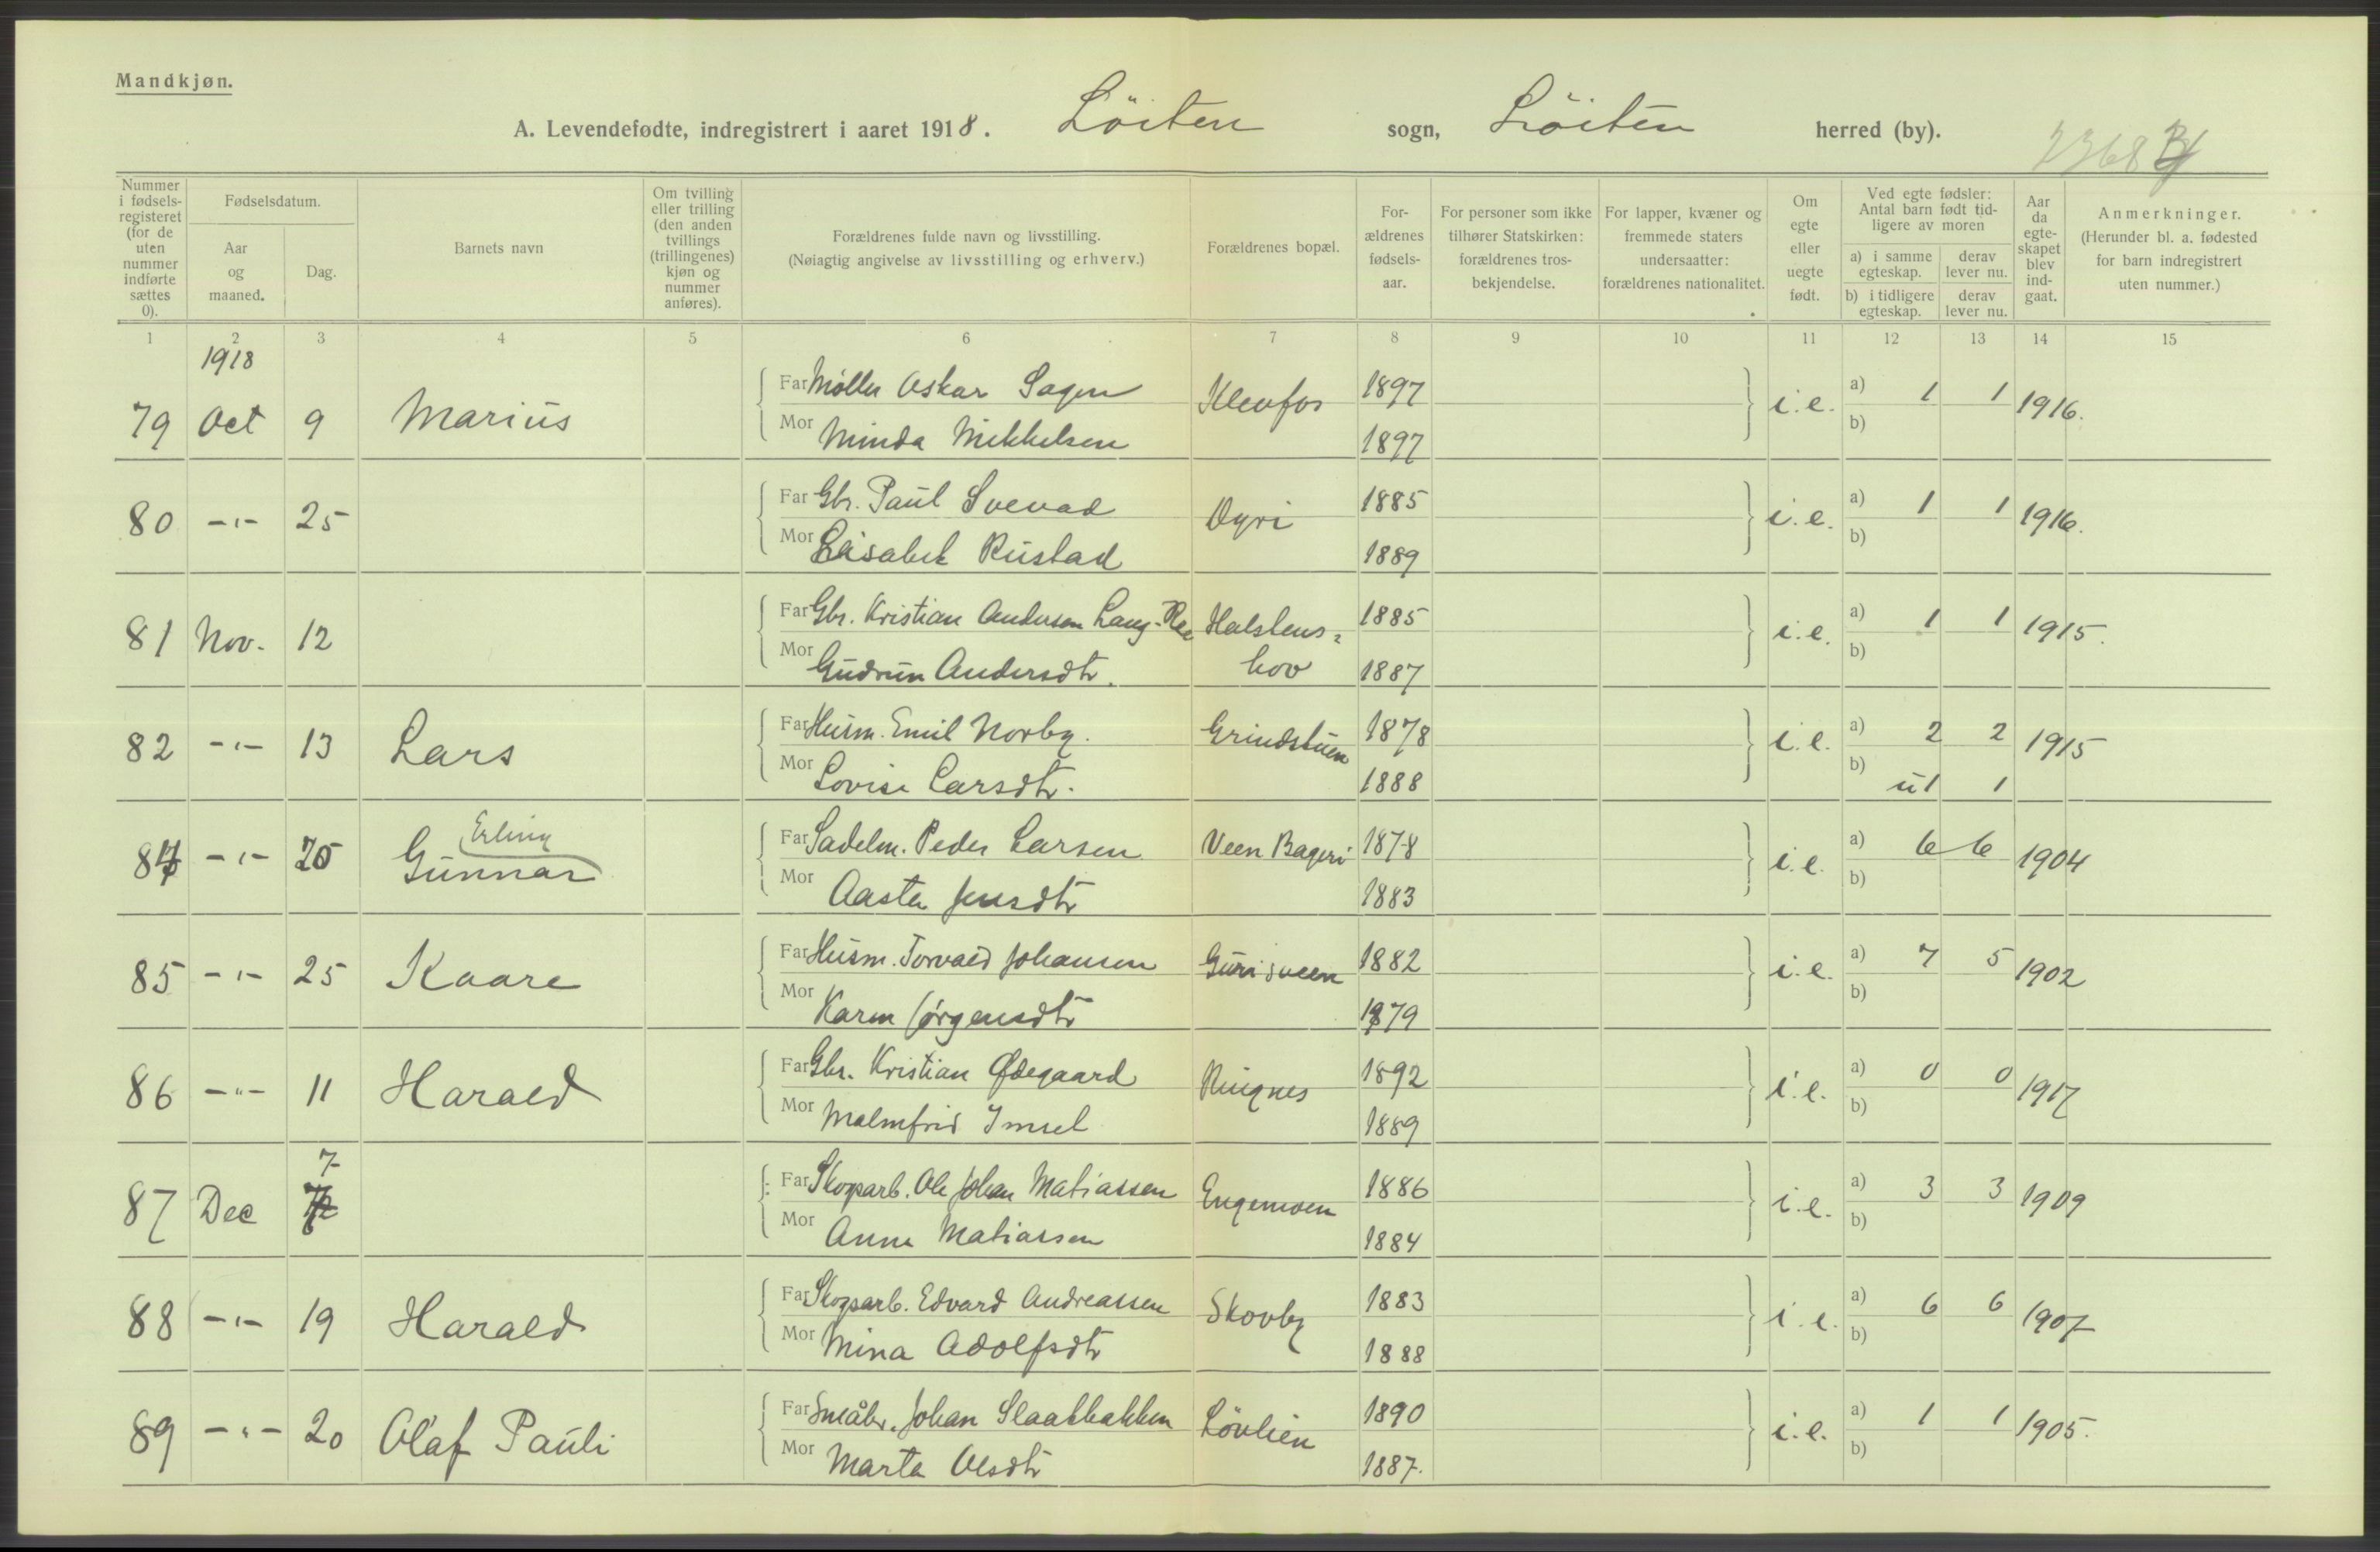 Mandkjøn.
A. Levendefødte, indregistrert i aaret 1918. Löiten sogn, Löiten herred (by).
2368
Nummer i fødsels-registeret (for de uten nummer indførte sættes 0).
Fødselsdatum.
Aar og maaned.
Dag.
Barnets navn
Om tvilling eller trilling (den anden tvillings (trillingenes) kjøn og nummer anføres).
Forældrenes fulde navn og livsstilling.
(Nøiagtig angivelse av livsstilling og erhverv.)
Forældrenes bopæl.
For-ældrenes fødsels-aar.
For personer som ikke tilhører Statskirken: forældrenes tros-bekjendelse.
For lapper, kvæner og fremmede staters undersaatter: forældrenes nationalitet.
Om egte eller uegte født.
Ved egte fødsler: Antal barn født tid-ligere av moren
a) i samme egteskap.
derav lever nu.
b) i tidligere egteskap.
derav lever nu.
Aar da egte-skapet blev ind-gaat.
Anmerkninger.
(Herunder bl. a. fødested for barn indregistrert uten nummer.)
1 2 3 4 5 6 7 8 9 10 11 12 13 14 15
1918
79 Oct 9 Marius Far Møller Oskar Sagen Klevfos 1897 i.e. a) 1 1 1916.
Mor Minda Mikkelsen 1897 b)
80 -"- 25 Far Gbr. Paul Svevad Ogri 1885 i.e. a) 1 1 1916.
Mor Elisabet Rustad 1889 b)
81 Nov. 12 Far Gbr. Kristian Andersen Lang-Ree Halstens-hov 1885 i.e. a) 1 1 1915.
Mor Gudrun Andersdtr. 1887 b)
82 -"- 13 Lars Far Husm. Emil Norby. Grindstuen 1878 i.e. a) 2 2 1915
Mor Lovise Larsdtr. 1888 b) u1 1
84 -"- 20 Gunnar Erling Far Sadelm. Peder Larsen Veen Bageri 1878 i.e. a) 6 6 1904
Mor Aasta Jensdtr 1883 b)
85 -"- 25 Kaare Far Husm. Torvald Johansen Gurisveen 1882 i.e. a) 7 5 1902
Mor Karen Jørgensdtr 1879 b)
86 -"- 11 Harald Far Gbr. Kristian Ødegaard Ringnes 1892 i.e. a) 0 0 1917
Mor Malmfrid Imsel 1889 b)
87 Dec 7 Far Skogsarb. Ole Johan Matiassen Engemoen 1886 i.e. a) 3 3 1909
Mor Anna Matiassen 1884 b)
88 -"- 19 Harald Far Skogsarb. Edvard Andreassen Skovby 1883 i.e. a) 6 6 1907
Mor Mina Adolfsdtr 1888 b)
89 -"- 20 Olaf Pauli Far Småbr. Johan Slaabakken Lövlien 1890 i.e. a) 1 1 1905.
Mor Marta Olsdtr 1887. b)